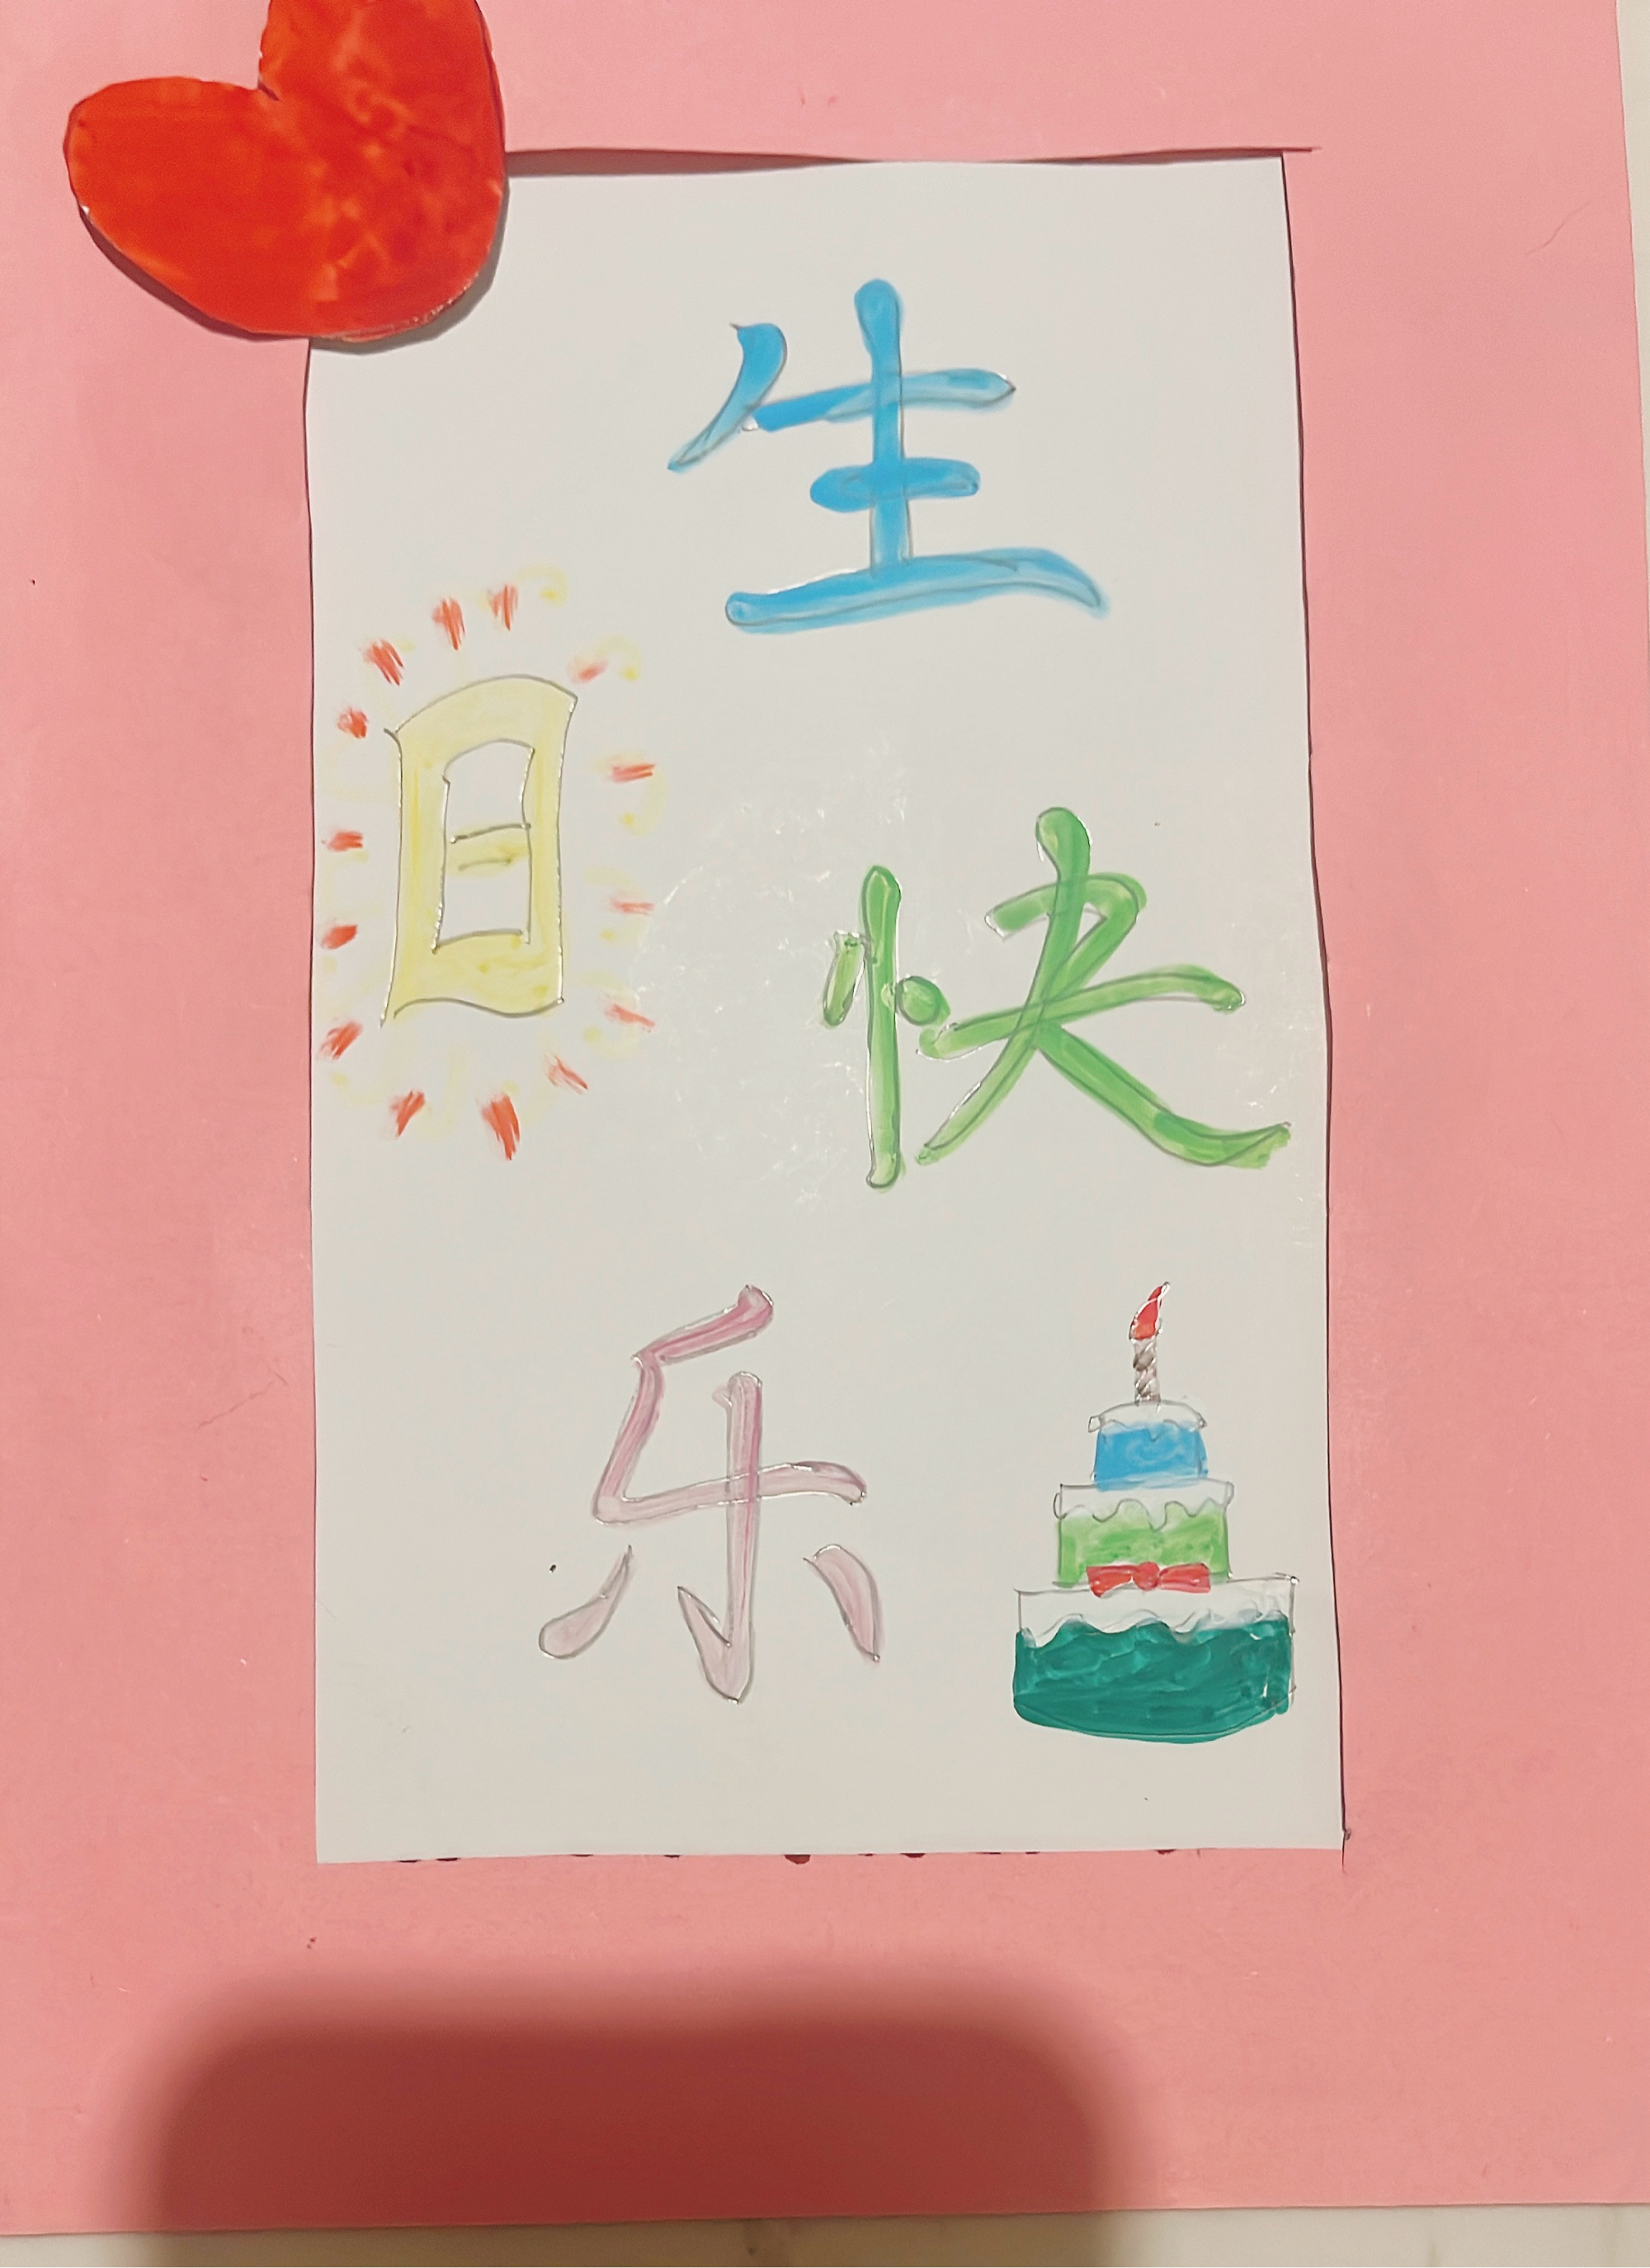 生
日
快
乐